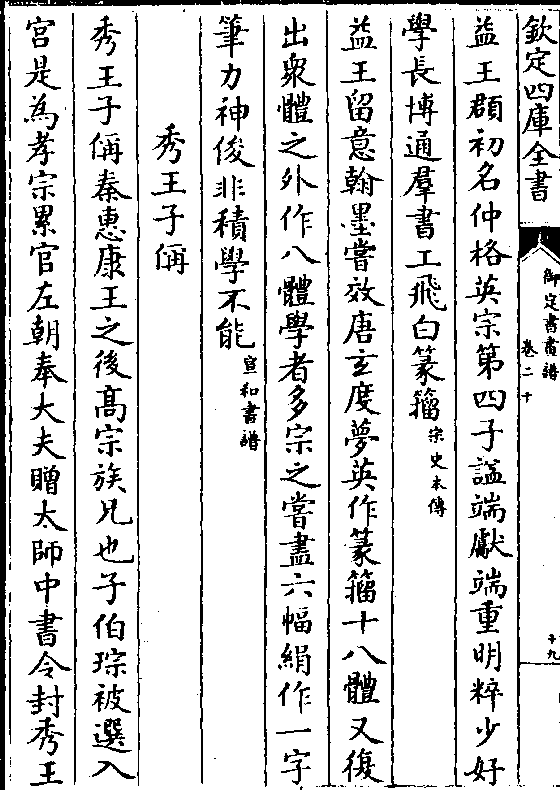 欽定四庫全書
御定書畫譜
卷二十
十九
益王頵初名仲格英宗第四子諡端獻端重明粹少好
學長博通羣書工飛白篆籀宋史本傳
益王留意翰墨嘗效唐玄度夢英作篆籀十八體又復
出衆體之外作八體學者多宗之嘗盡六幅絹作一字
筆力神俊非積學不能宣和書譜
秀王子偁
秀王子偁秦惠康王之後髙宗族兄也子伯琮被選入
宫是為孝宗累官左朝奉大夫贈太師中書令封秀王